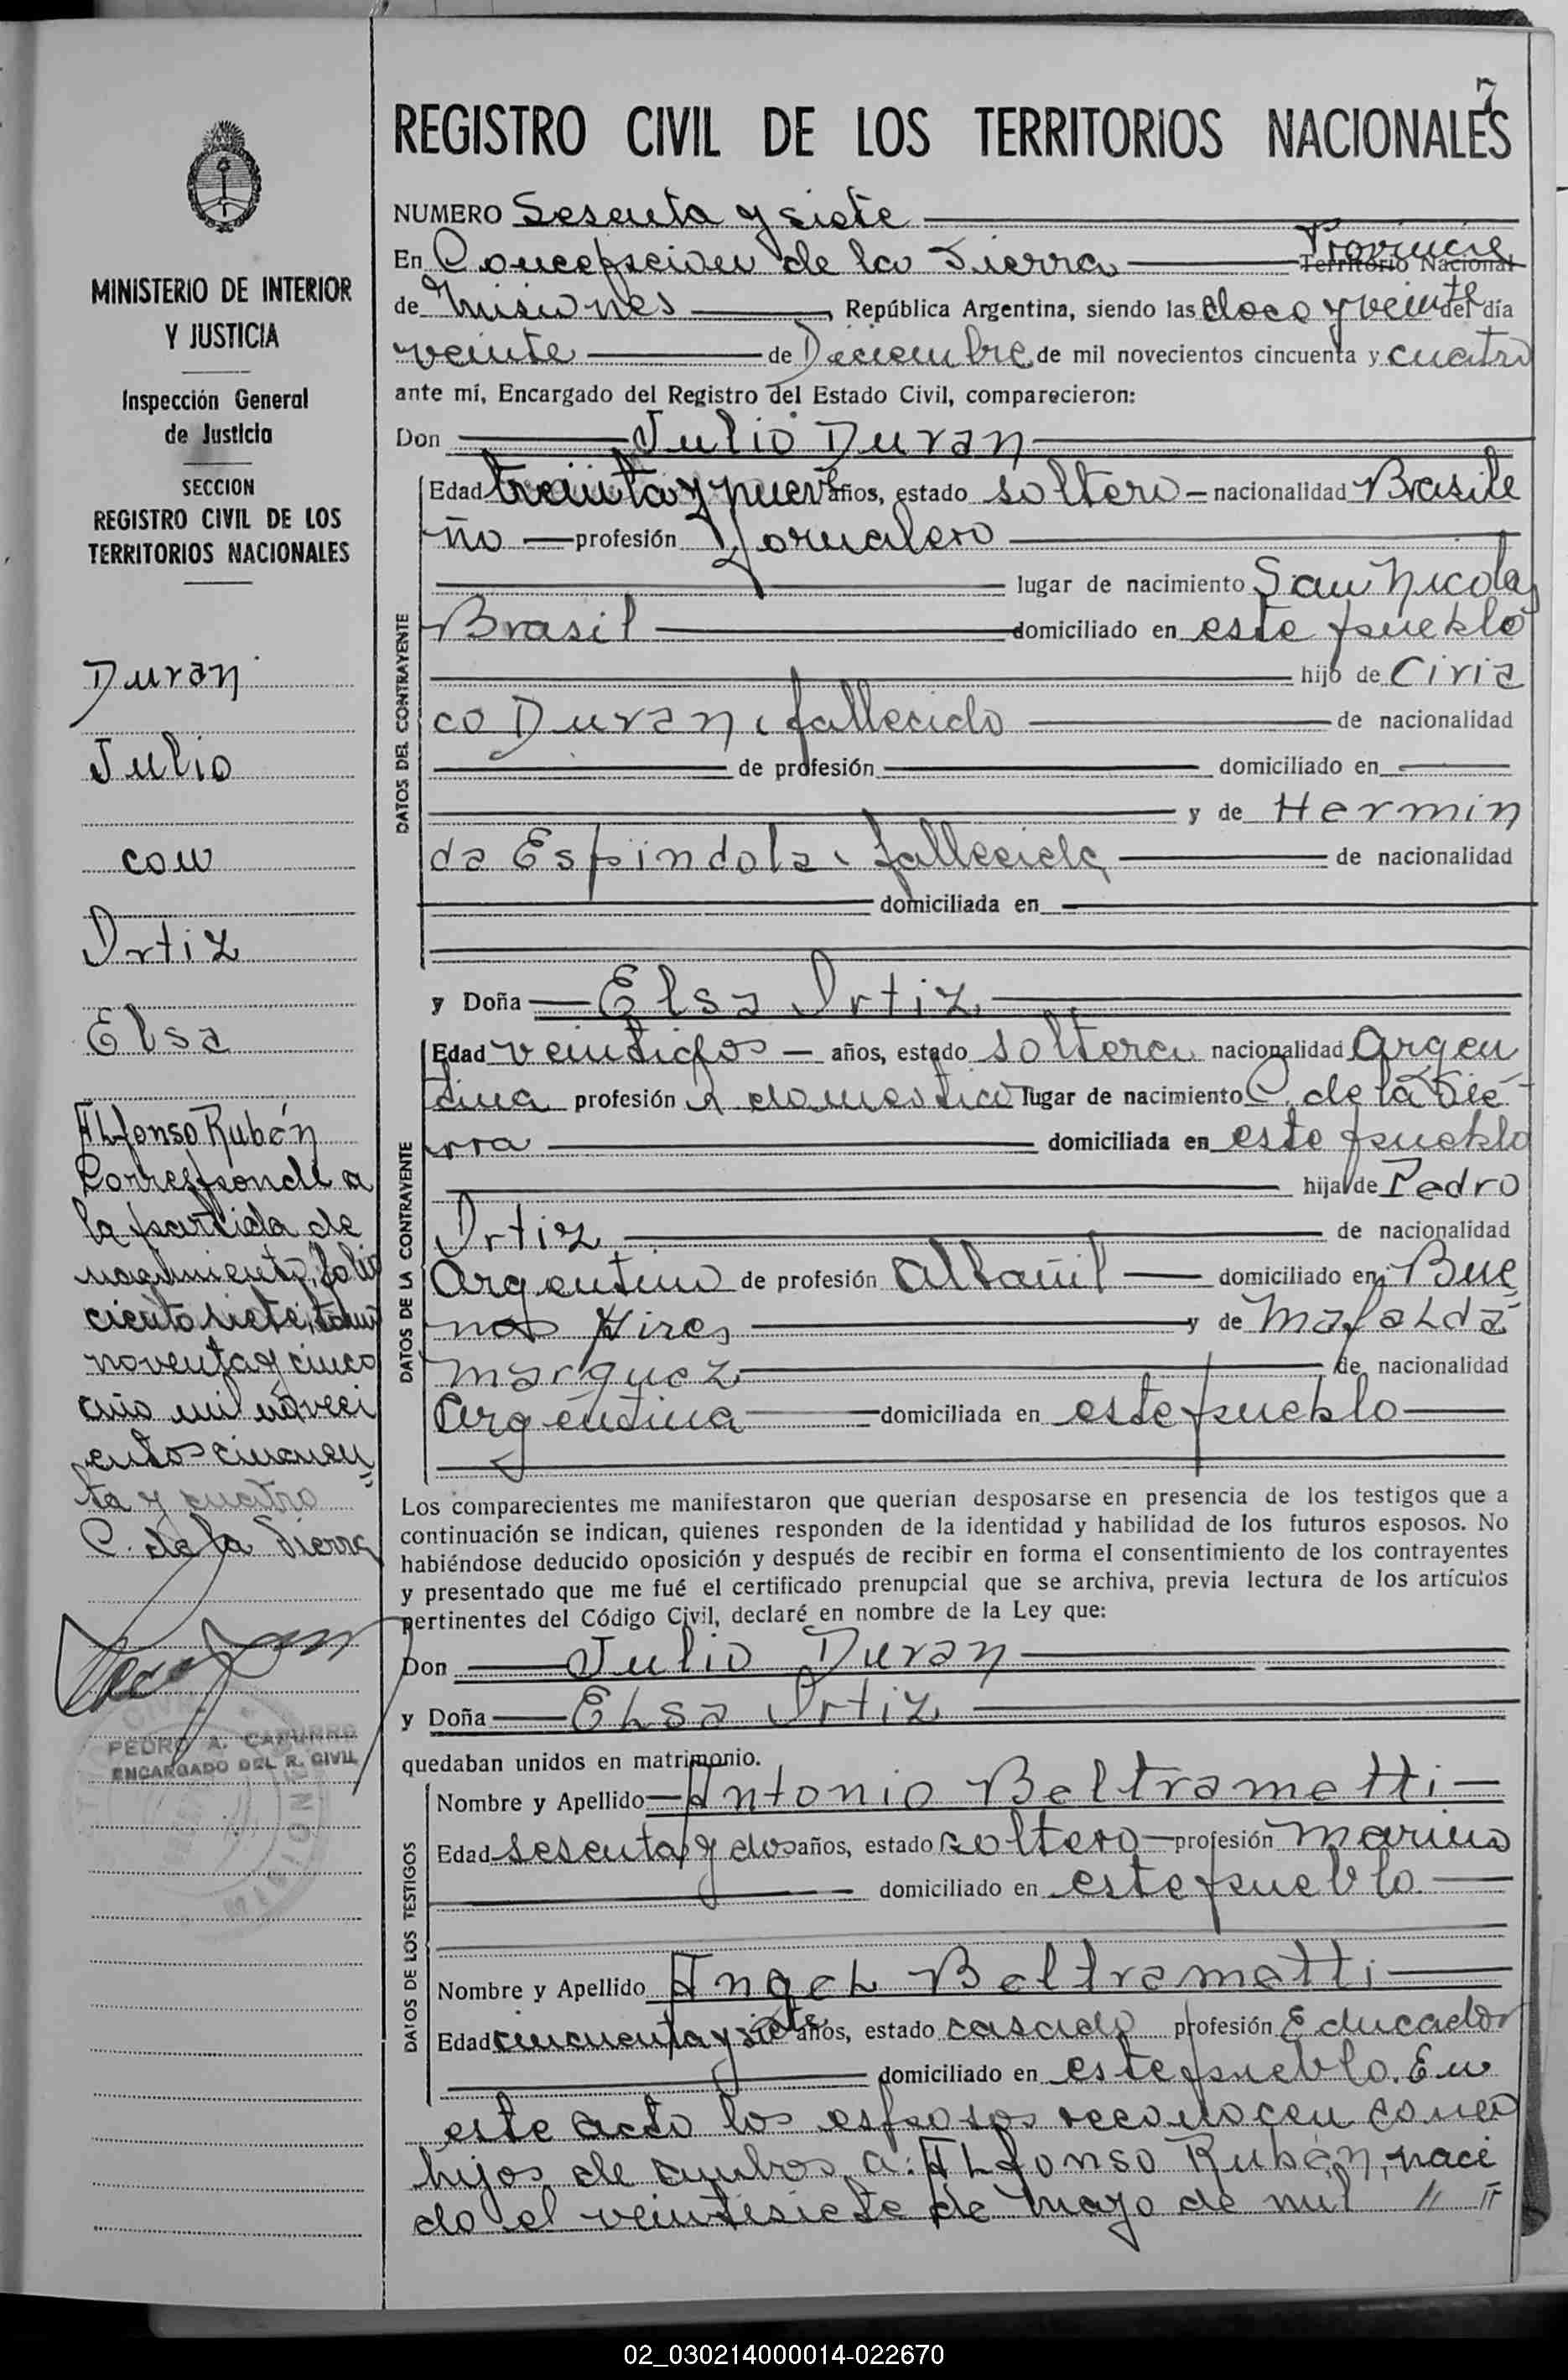 7
REGISTRO CIVIL DE LOS TERRITORIOS NACIONALES
MINISTERIO DE INTERIOR
Y JUSTICIA
Inspección General
de Justicia
SECCION
REGISTRO CIVIL DE LOS
TERRITORIOS NACIONALES
Duran
Julio
con
Ortiz
Elsa
ALfonso Rubén
Corresponde a
la partida de
nacimiento, folio
ciento siete, tomo
noventa y cinco
año mil noveci
entos cincuen
ta y cuatro
C. de la Sierra
PEDRO A. CAPURRO
ENCARGADO DEL R. CIVIL
NUMERO Sesenta y siete
En Concepcion de la Sierra Provincia Territorio Nacional
de Misiones, República Argentina, siendo las doce y veinte del día
veinte de Diciembre de mil novecientos cincuenta y cuatro
ante mí, Encargado del Registro del Estado Civil, comparecieron:
Don Julio Duran
DATOS DEL CONTRAYENTE
Edad treinta y nueve años, estado soltero nacionalidad Brasile
ño profesión Jornalero
lugar de nacimiento San Nicolas
Brasil domiciliado en este pueblo
hijo de Ciria
co Duran, fallecido de nacionalidad
de profesión domiciliado en
y de Hermin
da Espindola, fallecida de nacionalidad
domiciliada en
y Doña Elsa Ortiz
DATOS DE LA CONTRAYENTE
Edad veintidos años, estado soltera nacionalidad Argen
tina profesión domestico lugar de nacimiento C. de la Sie-
rra domiciliada en este pueblo
hija de Pedro
Ortiz de nacionalidad
Argentino de profesión Albañil domiciliado en Bue
nos Aires y de MafaLda
Marquez de nacionalidad
Argentina domiciliada en este pueblo
Los comparecientes me manifestaron que querían desposarse en presencia de los testigos que a
continuación se indican, quienes responden de la identidad y habilidad de los futuros esposos. No
habiéndose deducido oposición y después de recibir en forma el consentimiento de los contrayentes
y presentado que me fué el certificado prenupcial que se archiva, previa lectura de los artículos
pertinentes del Código Civil, declaré en nombre de la Ley que:
Don Julio Duran
y Doña ELsa Ortiz
quedaban unidos en matrimonio.
DATOS DE LOS TESTIGOS
Nombre y Apellido Antonio Beltrametti
Edad sesenta y dos años, estado soltero profesión marino
domiciliado en este pueblo.
Nombre y Apellido AngeL Beltrametti
Edad cincuenta y siete años, estado casado profesión Educador
domiciliado en este pueblo. En
este acto los esposos reconocen como
hijos de ambos a: ALfonso Rubén, naci
do el veintisiete de mayo de mil // //
02_030214000014-022670